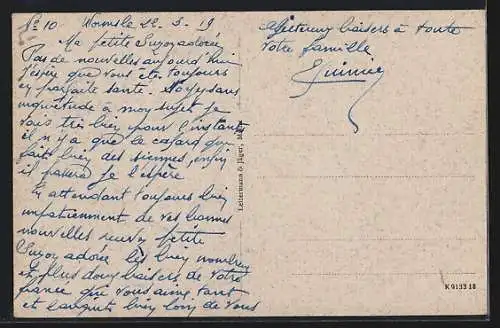 No 10 Worms le 22-5-19
Ma petite Suzy adorée
Pas de nouvelles aujourd'hui
j'espère que vous ete toujours
en parfaite santé. Soyez sans
inquietude à mon sujet je
vais très bien pour l'instant
il n'y a que le cafard qui
fait bien des siennes, enfin
il passera je l'espère
En attendant toujours bien
impatiemment de vos bonnes
nouvelles recevez petite
Suzy adorée les bien nombreux
et plus doux baisers de votre
fiancé qui vous aime tant
et languit bien loin de vous
Affectueux baisers à toute
votre famille
Lettermann & Jäger,
K 9133 18